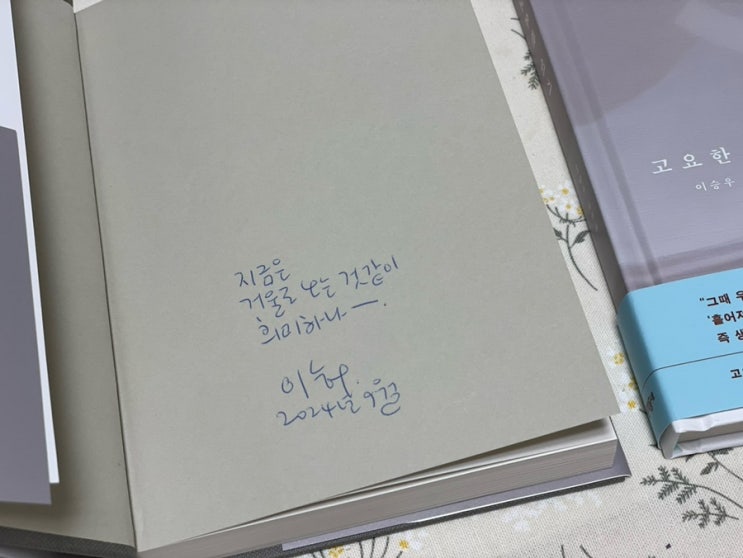 지금은
거울로 보는 것같이
희미하나 —.
이승우.
2024년 9월
고요한
이승우
"그때 우
'흩어지
즉 생
고